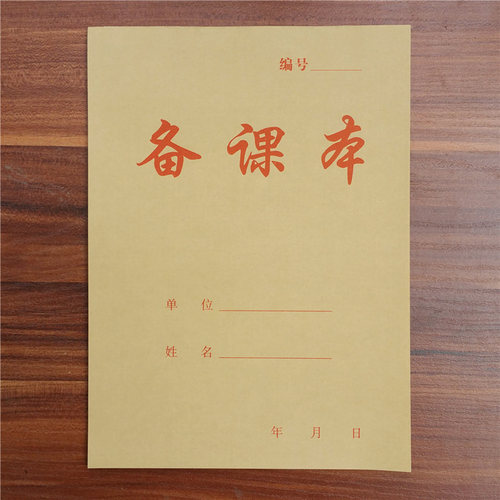 编号______
备课本
单 位______________
姓 名______________
年 月 日